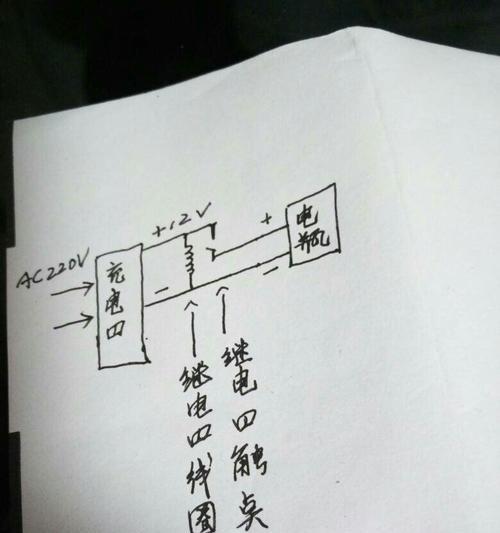 +12V
AC220V
充电四
+
电瓶
-
-
继电四线圈
继电四触点